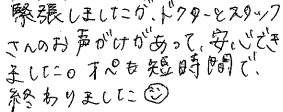 緊張しましたが、ドクターとスタッフ
さんのお声がけがあって、安心でき
ました。オペも短時間で、
終わりました☺